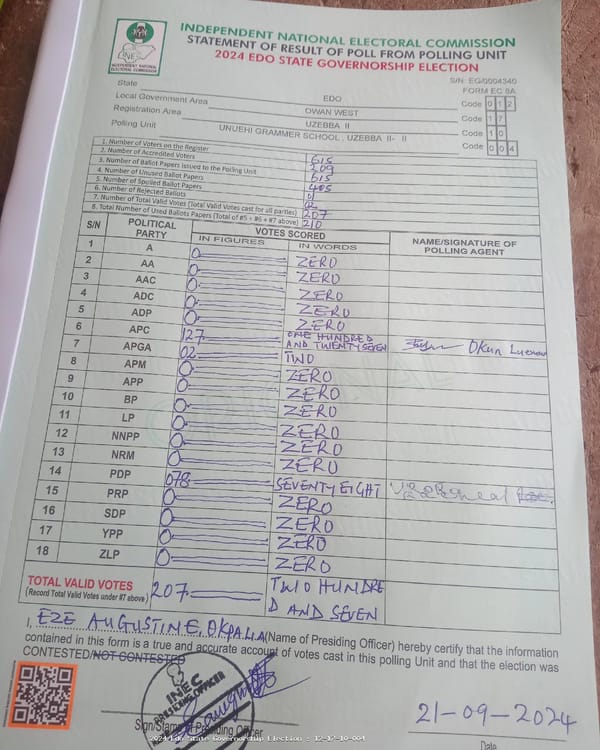 INDEPENDENT NATIONAL ELECTORAL COMMISSION
STATEMENT OF RESULT OF POLL FROM POLLING UNIT
2024 EDO STATE GOVERNORSHIP ELECTION
INEC
INDEPENDENT NATIONAL ELECTORAL COMMISSION
S/N: EG/0004340
FORM EC 8A
State EDO Code 0 1 2
Local Government Area OWAN WEST Code 1 7
Registration Area UZEBBA II Code 1 0
Polling Unit UNUEHI GRAMMER SCHOOL, UZEBBA II- II Code 0 0 4
1. Number of Voters on the Register 615
2. Number of Accredited Voters 209
3. Number of Ballot Papers Issued to the Polling Unit 615
4. Number of Unused Ballot Papers 405
5. Number of Spoiled Ballot Papers
6. Number of Rejected Ballots
7. Number of Total Valid Votes (Total Valid Votes cast for all parties) 207
8. Total Number of Used Ballots Papers (Total of #5 + #6 + #7 above) 210
S/N POLITICAL PARTY VOTES SCORED NAME/SIGNATURE OF POLLING AGENT
IN FIGURES IN WORDS
1 A 0 ZERO
2 AA 0 ZERO
3 AAC 0 ZERO
4 ADC 0 ZERO
5 ADP 0 ZERO
6 APC 127 ONE HUNDRED AND TWENTY SEVEN Okun
7 APGA 02 TWO
8 APM 0 ZERO
9 APP 0 ZERO
10 BP 0 ZERO
11 LP 0 ZERO
12 NNPP 0 ZERO
13 NRM 0 ZERO
14 PDP 078 SEVENTY EIGHT
15 PRP 0 ZERO
16 SDP 0 ZERO
17 YPP 0 ZERO
18 ZLP 0 ZERO
TOTAL VALID VOTES 207 TWO HUNDRE
(Record Total Valid Votes under #7 above) D AND SEVEN
I, EZE AUGUSTINE, OKPALIA (Name of Presiding Officer) hereby certify that the information
contained in this form is a true and accurate account of votes cast in this polling Unit and that the election was
CONTESTED/NOT CONTESTED
INEC
PRESIDING OFFICER
Sign/Stamp of Presiding Officer
21-09-2024
Date
2024 Edo State Governorship Election : 12_17_10_004